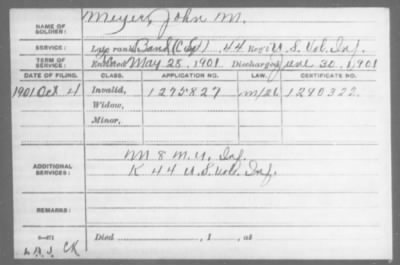 NAME OF SOLDIER: Meyer, John M.
SERVICE: Late rank, Band 44 Reg't U.S. Vol. Inf.
TERM OF SERVICE: Enlisted May 28, 1901 Discharged June 30, 1901
DATE OF FILING. CLASS. APPLICATION NO. LAW. CERTIFICATE NO.
1901 Oct 4 Invalid, 1275827 1290322
Widow,
Minor,
ADDITIONAL SERVICES: M 8 Inf.
K 44 U.S. Vol. Inf.
REMARKS:
Died , 1 , at